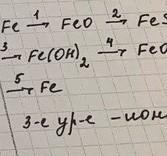 Fe 1→ FeO 2→ FeS
3→ Fe(OH)2 4→ FeO
5→ Fe
3-е ур-е - ион